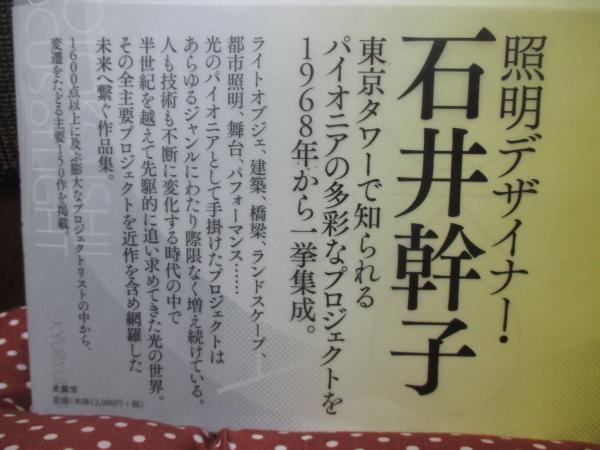 照明デザイナー・
石井幹子
東京タワーで知られる
パイオニアの多彩なプロジェクトを
1968年から一挙集成。
ライトオブジェ、建築、橋梁、ランドスケープ、
都市照明、舞台、パフォーマンス……
光のパイオニアとして手掛けたプロジェクトは
あらゆるジャンルにわたり際限なく増え続けている。
人も技術も不断に変化する時代の中で
半世紀を越えて先駆的に追い求めてきた光の世界。
その全主要プロジェクトを近作を含め網羅した
未来へ繋ぐ作品集。
1600点以上に及ぶ膨大なプロジェクトリストの中から、
変遷をたどる主要150作を掲載。
求龍堂
定価(本体12,000円+税)